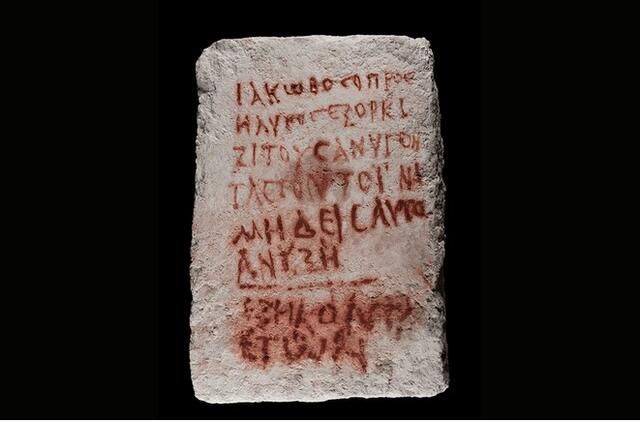 ΙΑΚΩΒΟϹΟΠΡΟϹ
ΗΛΥΤΟϹΕΞΟΡΚΙ
ΖΙΤΟΥϹΑΝΥΓΟΝ
ΤΑϹΤΟΝΤΟΙΝΑ
ΜΗΔΕΙϹΑΥΤΟ
ΑΝΥΞΗ
ΕΞΗΚΟΝΤΑ
ΕΤΩΝ